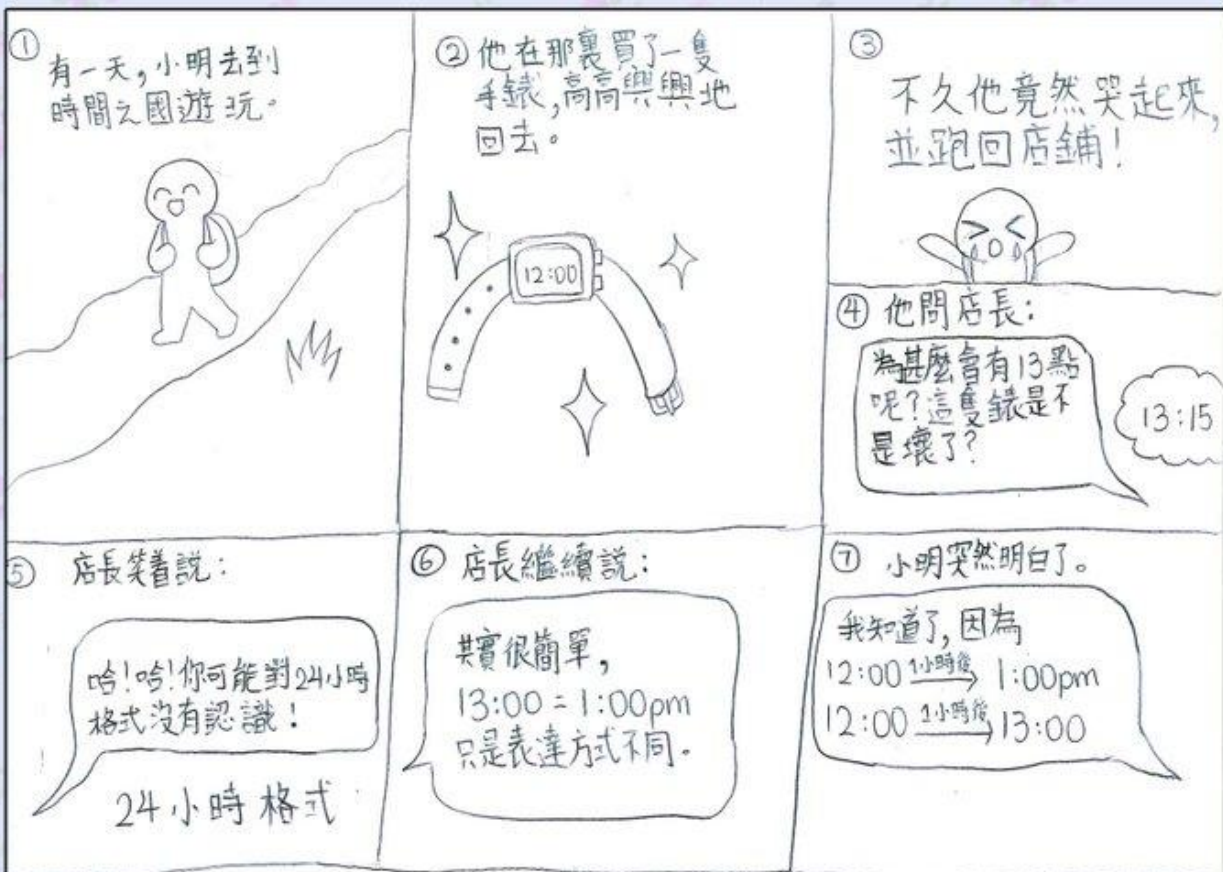 ①
有一天,小明去到
時間之國遊玩。
② 他在那裏買了一隻
手錶,高高興興地
回去。
12:00
③
不久他竟然哭起來,
並跑回店鋪!
④ 他問店長:
為甚麼會有13點
呢?這隻錶是不
是壞了?
13:15
⑤ 店長笑着說:
哈!哈!你可能對24小時
格式沒有認識!
24小時格式
⑥ 店長繼續說:
其實很簡單,
13:00=1:00pm
只是表達方式不同。
⑦ 小明突然明白了。
我知道了,因為
12:00 1小時後 1:00pm
12:00 1小時後 13:00